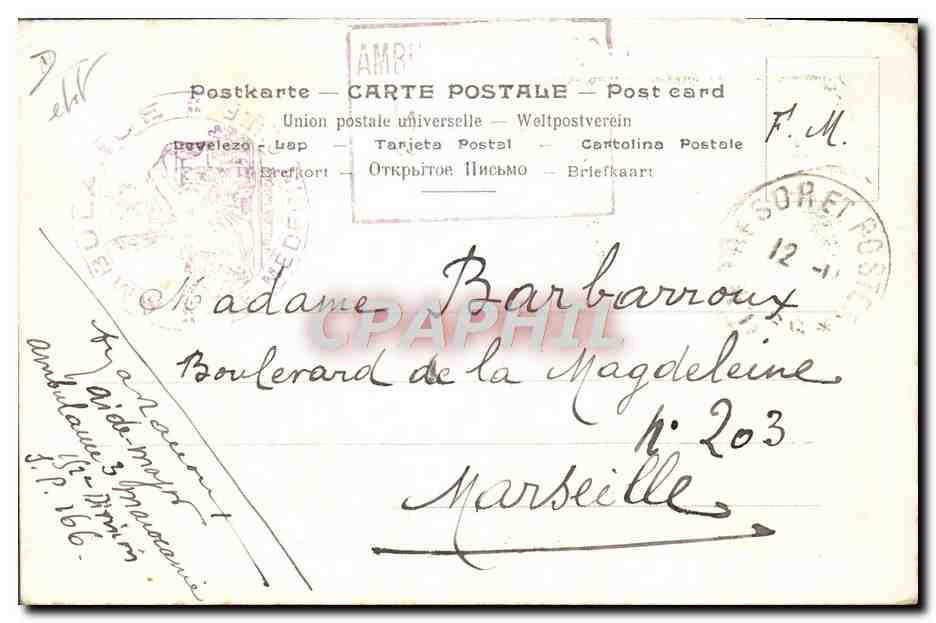 Postkarte — CARTE POSTALE — Post card
Union postale universelle — Weltpostverein
Levelezo-Lap — Tarjeta Postal — Cartolina Postale
Brefkort — Открытое Письмо — Briefkaart
F. M.
TRESOR ET POSTES
12
Madame Barbarroux
CPAPHIL
Boulevard de la Magdeleine
N° 203
Marseille
aide-major
ambulance 3 marocaine
152e Division
S. P. 166.